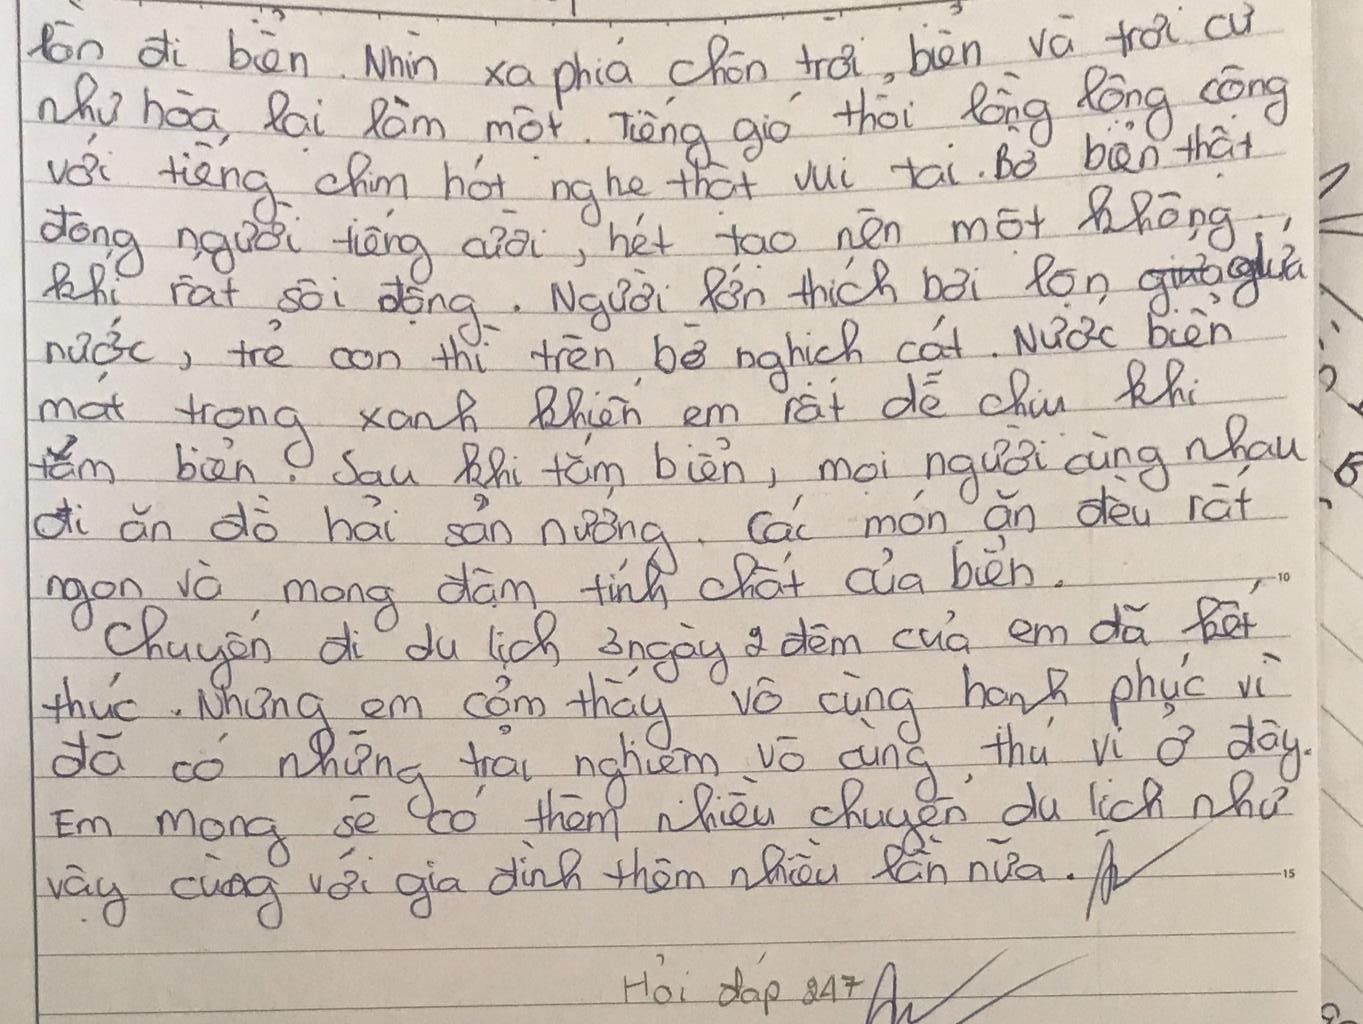 lên đi biển. Nhìn xa phía chân trời, biển và trời cứ
như hòa lại làm một. Tiếng gió thổi lồng lộng cộng
với tiếng chim hót nghe thật vui tai. Bờ biển thật
đông người tiếng cười, hét tạo nên một không
khí rất sôi động. Người lớn thích bơi lộn giữa
nước, trẻ con thì trên bờ nghịch cát. Nước biển
mát trong xanh khiến em rất dễ chịu khi
tắm biển. Sau khi tắm biển, mọi người cùng nhau
đi ăn đồ hải sản nướng. Các món ăn đều rất
ngon và mang đậm tính chất của biển.
10
Chuyến đi du lịch 3 ngày 2 đêm của em đã kết
thúc. Nhưng em cảm thấy vô cùng hạnh phục vì
đã có những trải nghiệm vô cùng thú vị ở đây.
Em mong sẽ có thêm nhiều chuyến du lịch như
vậy cùng với gia đình thêm nhiều lần nữa.
15
Hỏi đáp 247